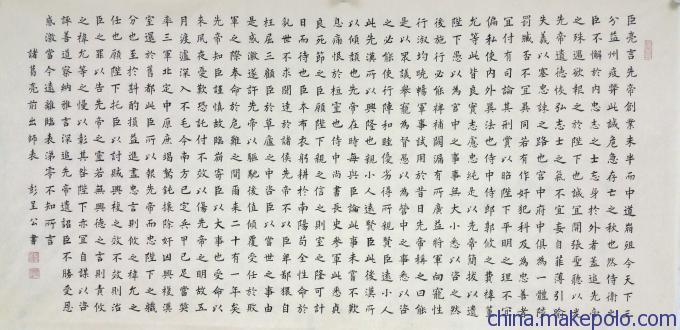 臣亮言先帝創業未半而中道崩殂今天下三
分益州疲弊此誠危急存亡之秋也然侍衛之
臣不懈於内忠志之士忘身於外者蓋追先帝
之殊遇欲報之於陛下也誠宜開張聖聽以光
先帝遺德恢弘志士之氣不宜妄自菲薄引喻
失義以塞忠諫之路也宮中府中俱為一體陟
罰臧否不宜異同若有作奸犯科及為忠善者
宜付有司論其刑賞以昭陛下平明之理不宜
偏私使内外異法也侍中侍郎郭攸之費禕董
允等此皆良實志慮忠純是以先帝簡拔以遺
陛下愚以為宮中之事事無大小悉以咨之然
後施行必能裨補闕漏有所廣益將軍向寵性
行淑均曉暢軍事試用於昔日先帝稱之曰能
是以衆議舉寵為督愚以為營中之事悉以咨
之必能使行陣和睦優劣得所親賢臣遠小人
此先漢所以興隆也親小人遠賢臣此後漢所
以傾頹也先帝在時每與臣論此事未嘗不歎
息痛恨於桓靈也侍中尚書長史參軍此悉貞
良死節之臣願陛下親之信之則室之隆可計
日而待也臣本布衣躬耕於南陽苟全性命於
亂世不求聞達於諸侯先帝不以臣卑鄙猥自
枉屈三顧臣於草廬之中咨臣以當世之事由
是感激遂許先帝以驅馳後值傾覆受任於敗
軍之際奉命於危難之間爾來二十有一年矣
先帝知臣謹慎故臨崩寄臣以大事也受命以
來夙夜憂歎恐託付不效以傷先帝之明故五
月渡瀘深入不毛今南方已定兵甲已足當獎
率三軍北定中原庶竭駑鈍攘除奸凶興復漢
室還於舊都此臣所以報先帝而忠陛下之職
分也至於斟酌損益進盡忠言則攸之禕允之
任也願陛下托臣以討賊興復之效不效則治
臣之罪以告先帝之靈若無興德之言則責攸
之禕允等之慢以彰其咎陛下亦宜自謀以咨
諏善道察納雅言深追先帝遺詔臣不勝受恩
感激當今遠離臨表涕零不知所言
諸葛亮前出師表 彭呈公書
china.makepolo.com